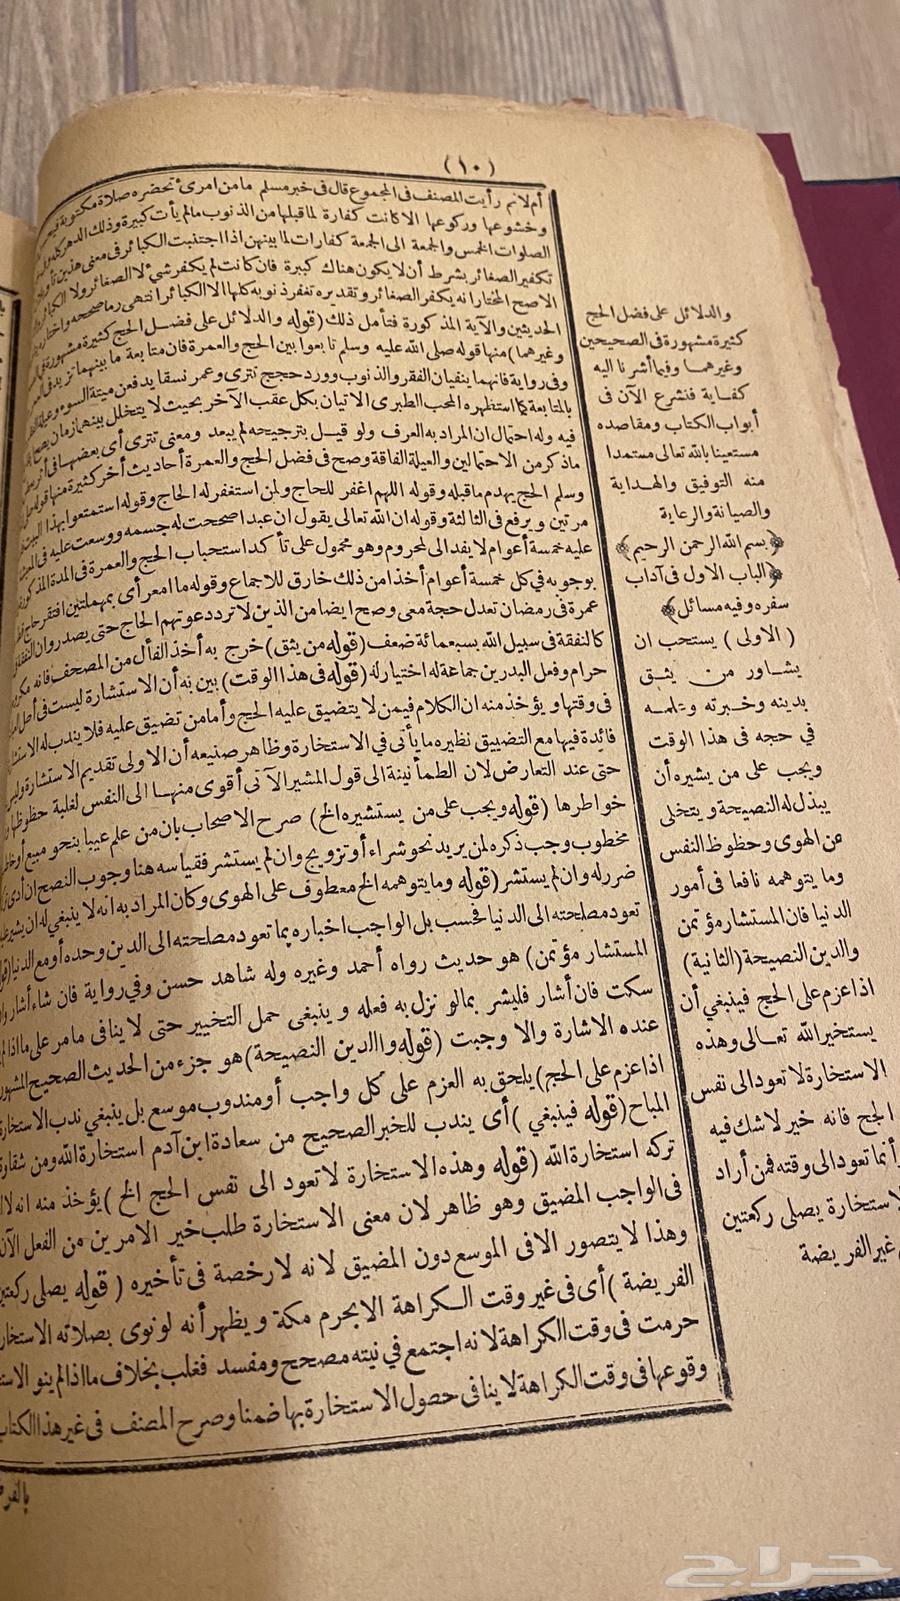 (١٠)
أم لا ثم رأيت المصنف فى المجموع قال فى خبر مسلم ما من امرئ تحضره صلاة مكتوبة
وخشوعها وركوعها الا كانت كفارة لما قبلها من الذنوب ما لم يأت كبيرة وذلك الدهر كله
الصلوات الخمس والجمعة الى الجمعة كفارات لما بينهن اذا اجتنبت الكبائر فى معنى هذين
تكفير الصغائر بشرط أن لا يكون هناك كبيرة فان كانت لم يكفر شئ لا الصغائر ولا الكبائر
الاصح المختار انه يكفر الصغائر وتقديره تغفر ذنوبه كلها الا الكبائر انتهى
الحديثين والآية المذكورة فتأمل ذلك (قوله والدلائل على فضل الحج كثيرة مشهورة فى
وغيرهما) منها قوله صلى الله عليه وسلم تابعوا بين الحج والعمرة فان متابعة ما بينهما تزيد فى
وفى رواية فانهما ينفيان الفقر والذنوب وورد حجج تترى وعمر نسقا يدفعن ميتة السوء وعيلة
بالمتابعة كما استظهره المحب الطبرى الاتيان بكل عقب الآخر بحيث لا يتخلل بينهما زمان
فيه وله احتمال ان المراد به العرف ولو قيل بترجيحه لم يبعد ومعنى تترى أى بعضها فى أثر
ماذكر من الاحتمالين والعيلة الفاقة وصح فى فضل الحج والعمرة أحاديث أخر كثيرة منها قوله
وسلم الحج يهدم ما قبله وقوله اللهم اغفر للحاج ولمن استغفر له الحاج وقوله استمتعوا بهذا البيت
مرتين ويرفع فى الثالثة وقوله ان الله تعالى يقول ان عبدا صححت له جسمه ووسعت عليه فى
عليه خمسة أعوام لا يفد الى لمحروم وهو محمول على تأكد استحباب الحج والعمرة فى المدة المذكورة
بوجوبه فى كل خمسة أعوام أخذا من ذلك خارق للاجماع وقوله ما امعر أى بمهملتين افتقر حاج
عمرة فى رمضان تعدل حجة معى وصح ايضا من الذين لا ترد دعوتهم الحاج حتى يصدر وان النفقة
كالنفقة فى سبيل الله بسبعمائة ضعف (قوله من يثق) خرج به أخذ الفأل من المصحف فانه
حرام وفعل البدرين جماعة له اختيار له (قوله فى هذا الوقت) بين به أن الاستشارة ليست فى أصل
فى وقتها ويؤخذ منه ان الكلام فيمن لا يتضيق عليه الحج وأما من تضيق عليه فلا يندب له
فائدة فيها مع التضييق نظيره ما يأتى فى الاستخارة وظاهر صنيعه أن الاولى تقديم الاستشارة
حتى عند التعارض لان الطمأنينة الى قول المشير الآتى أقوى منها الى النفس لغلبة حظوظها
خواطرها (قوله ويجب على من يستشيره الخ) صرح الاصحاب بان من علم عيبا بنحو مبيع أو
مخطوب وجب ذكره لمن يريد نحو شراء أو تزويج وان لم يستشر فقياسه هنا وجوب النصح ان أدى
ضرر له وان لم يستشر (قوله وما يتوهمه الخ معطوف على الهوى وكان المراد به انه لا ينبغى له ان يشير
تعود مصلحته الى الدنيا فحسب بل الواجب اخباره بما تعود مصلحته الى الدين وحده أو مع الدنيا
المستشار مؤتمن) هو حديث رواه أحمد وغيره وله شاهد حسن وفى رواية فان شاء أشار
سكت فان أشار فليشر بما لو نزل به فعله وينبغى حمل التخيير حتى لا ينافى ما مر على ما اذا
عنده الاشارة والا وجبت (قوله والدين النصيحة) هو جزء من الحديث الصحيح المشهور
اذا عزم على الحج) يلحق به العزم على كل واجب أو مندوب موسع بل ينبغى ندب الاستخارة
المباح (قوله فينبغى) أى يندب للخبر الصحيح من سعادة ابن آدم استخارة الله ومن شقاوة
تركه استخارة الله (قوله وهذه الاستخارة لا تعود الى نفس الحج الخ) يؤخذ منه انه
فى الواجب المضيق وهو ظاهر لان معنى الاستخارة طلب خير الامرين من الفعل الآن
وهذا لا يتصور الا فى الموسع دون المضيق لانه لا رخصة فى تأخيره (قوله يصلى ركعتين
الفريضة) أى فى غير وقت الكراهة الا بحرم مكة ويظهر أنه لو نوى بصلاته الاستخارة
حرمت فى وقت الكراهة لانه اجتمع فى نيته مصحح ومفسد فغلب بخلاف ما اذا لم ينو
وقوعها فى وقت الكراهة لا ينافى حصول الاستخارة بها ضمنا وصرح المصنف فى غير هذا الكتاب
والدلائل على فضل الحج
كثيرة مشهورة فى الصحيحين
وغيرهما وفيما أشرنا اليه
كفاية فنشرع الآن فى
أبواب الكتاب ومقاصده
مستعينا بالله تعالى مستمدا
منه التوفيق والهداية
والصيانة والرعاية
﴿بسم الله الرحمن الرحيم﴾
﴿الباب الاول فى آداب
سفره وفيه مسائل﴾
(الاولى) يستحب ان
يشاور من يثق
بدينه وخبرته وعلمه
في حجه فى هذا الوقت
ويجب على من يشيره أن
يبذل له النصيحة ويتخلى
من الهوى وحظوظ النفس
وما يتوهمه نافعا فى أمور
الدنيا فان المستشار مؤتمن
والدين النصيحة (الثانية)
اذا عزم على الحج فينبغي أن
يستخير الله تعالى وهذه
الاستخارة لا تعود الى نفس
الحج فانه خير لا شك فيه
وأنما تعود الى وقته فمن أراد
الاستخارة يصلى ركعتين
غير الفريضة
حراج